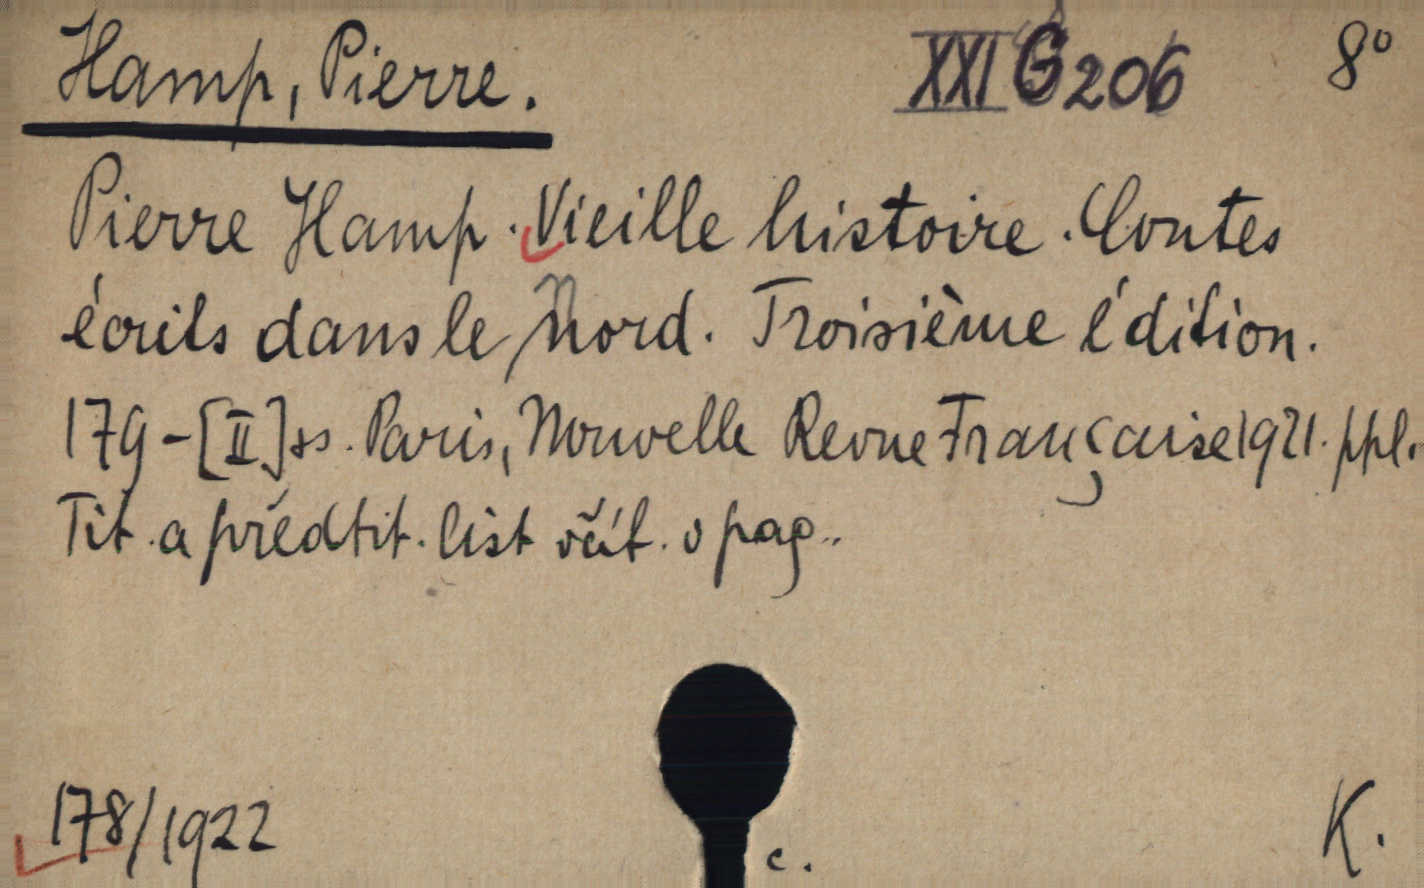 Hamp, Pierre. XXI G 206 8°
Pierre Hamp. Vieille histoire. Contes
écrits dans le Nord. Troisième édition.
179-[II] ss. Paris, Nouvelle Revue Française 1921. ppl.
Tit. a předtit. list včít. v pag..
178/1922 c. K.